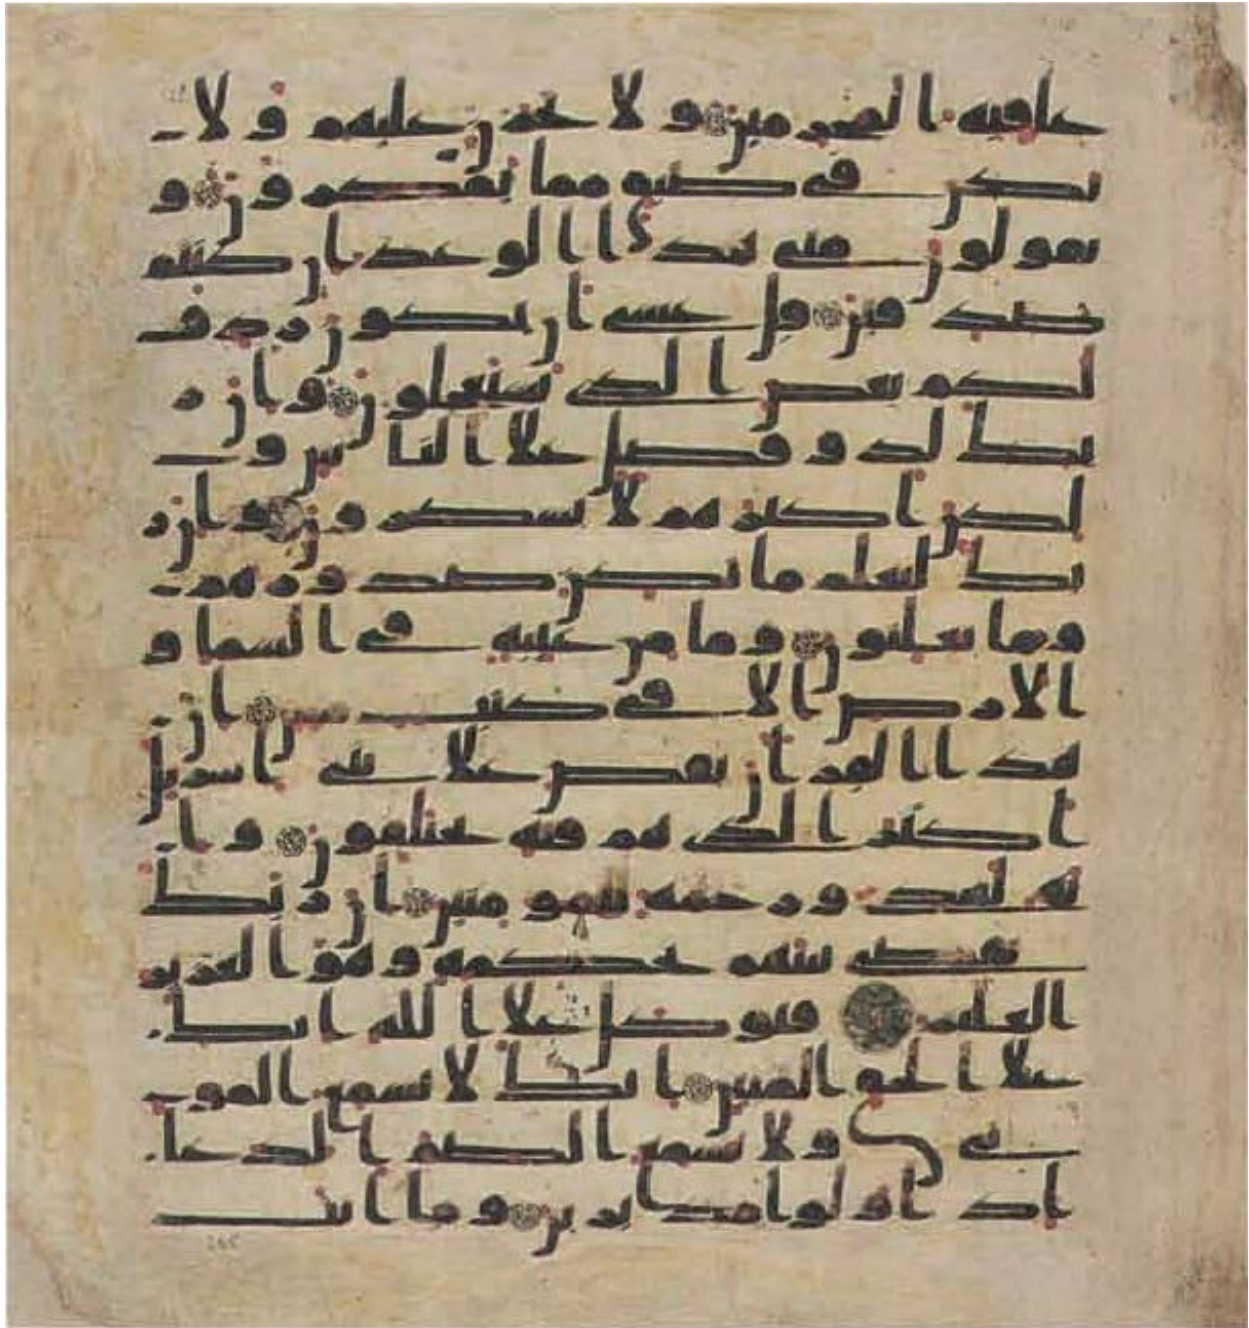 عاقبة المجرمين ولا تحزن عليهم ولا
تكن في ضيق مما يمكرون و
يقولون متى هذا الوعد ان كنتم
صدقين قل عسى ان يكون ردف
لكم بعض الذي تستعجلون وان ر
بك لذو فضل على الناس و
لكن اكثرهم لا يشكرون وان ر
بك ليعلم ما تكن صدورهم
وما يعلنون وما من غايبة في السما و
الارض الا في كتب مبين ان
هذا القران يقص على بني اسريل
اكثر الذي هم فيه يختلفون وا
نه لهدى ورحمة للمومنين ان ربك
يقضي بينهم بحكمه وهو العزيز
العليم فتوكل على الله انك
على الحق المبين انك لا تسمع المو
تى ولا تسمع الصم الدعا
اذا ولوا مدبرين وما انت